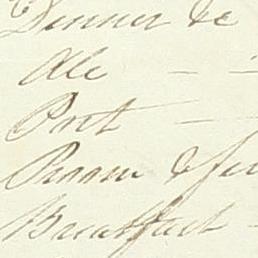 Dinner &c
Ale
Port
Room & fire
Breakfast